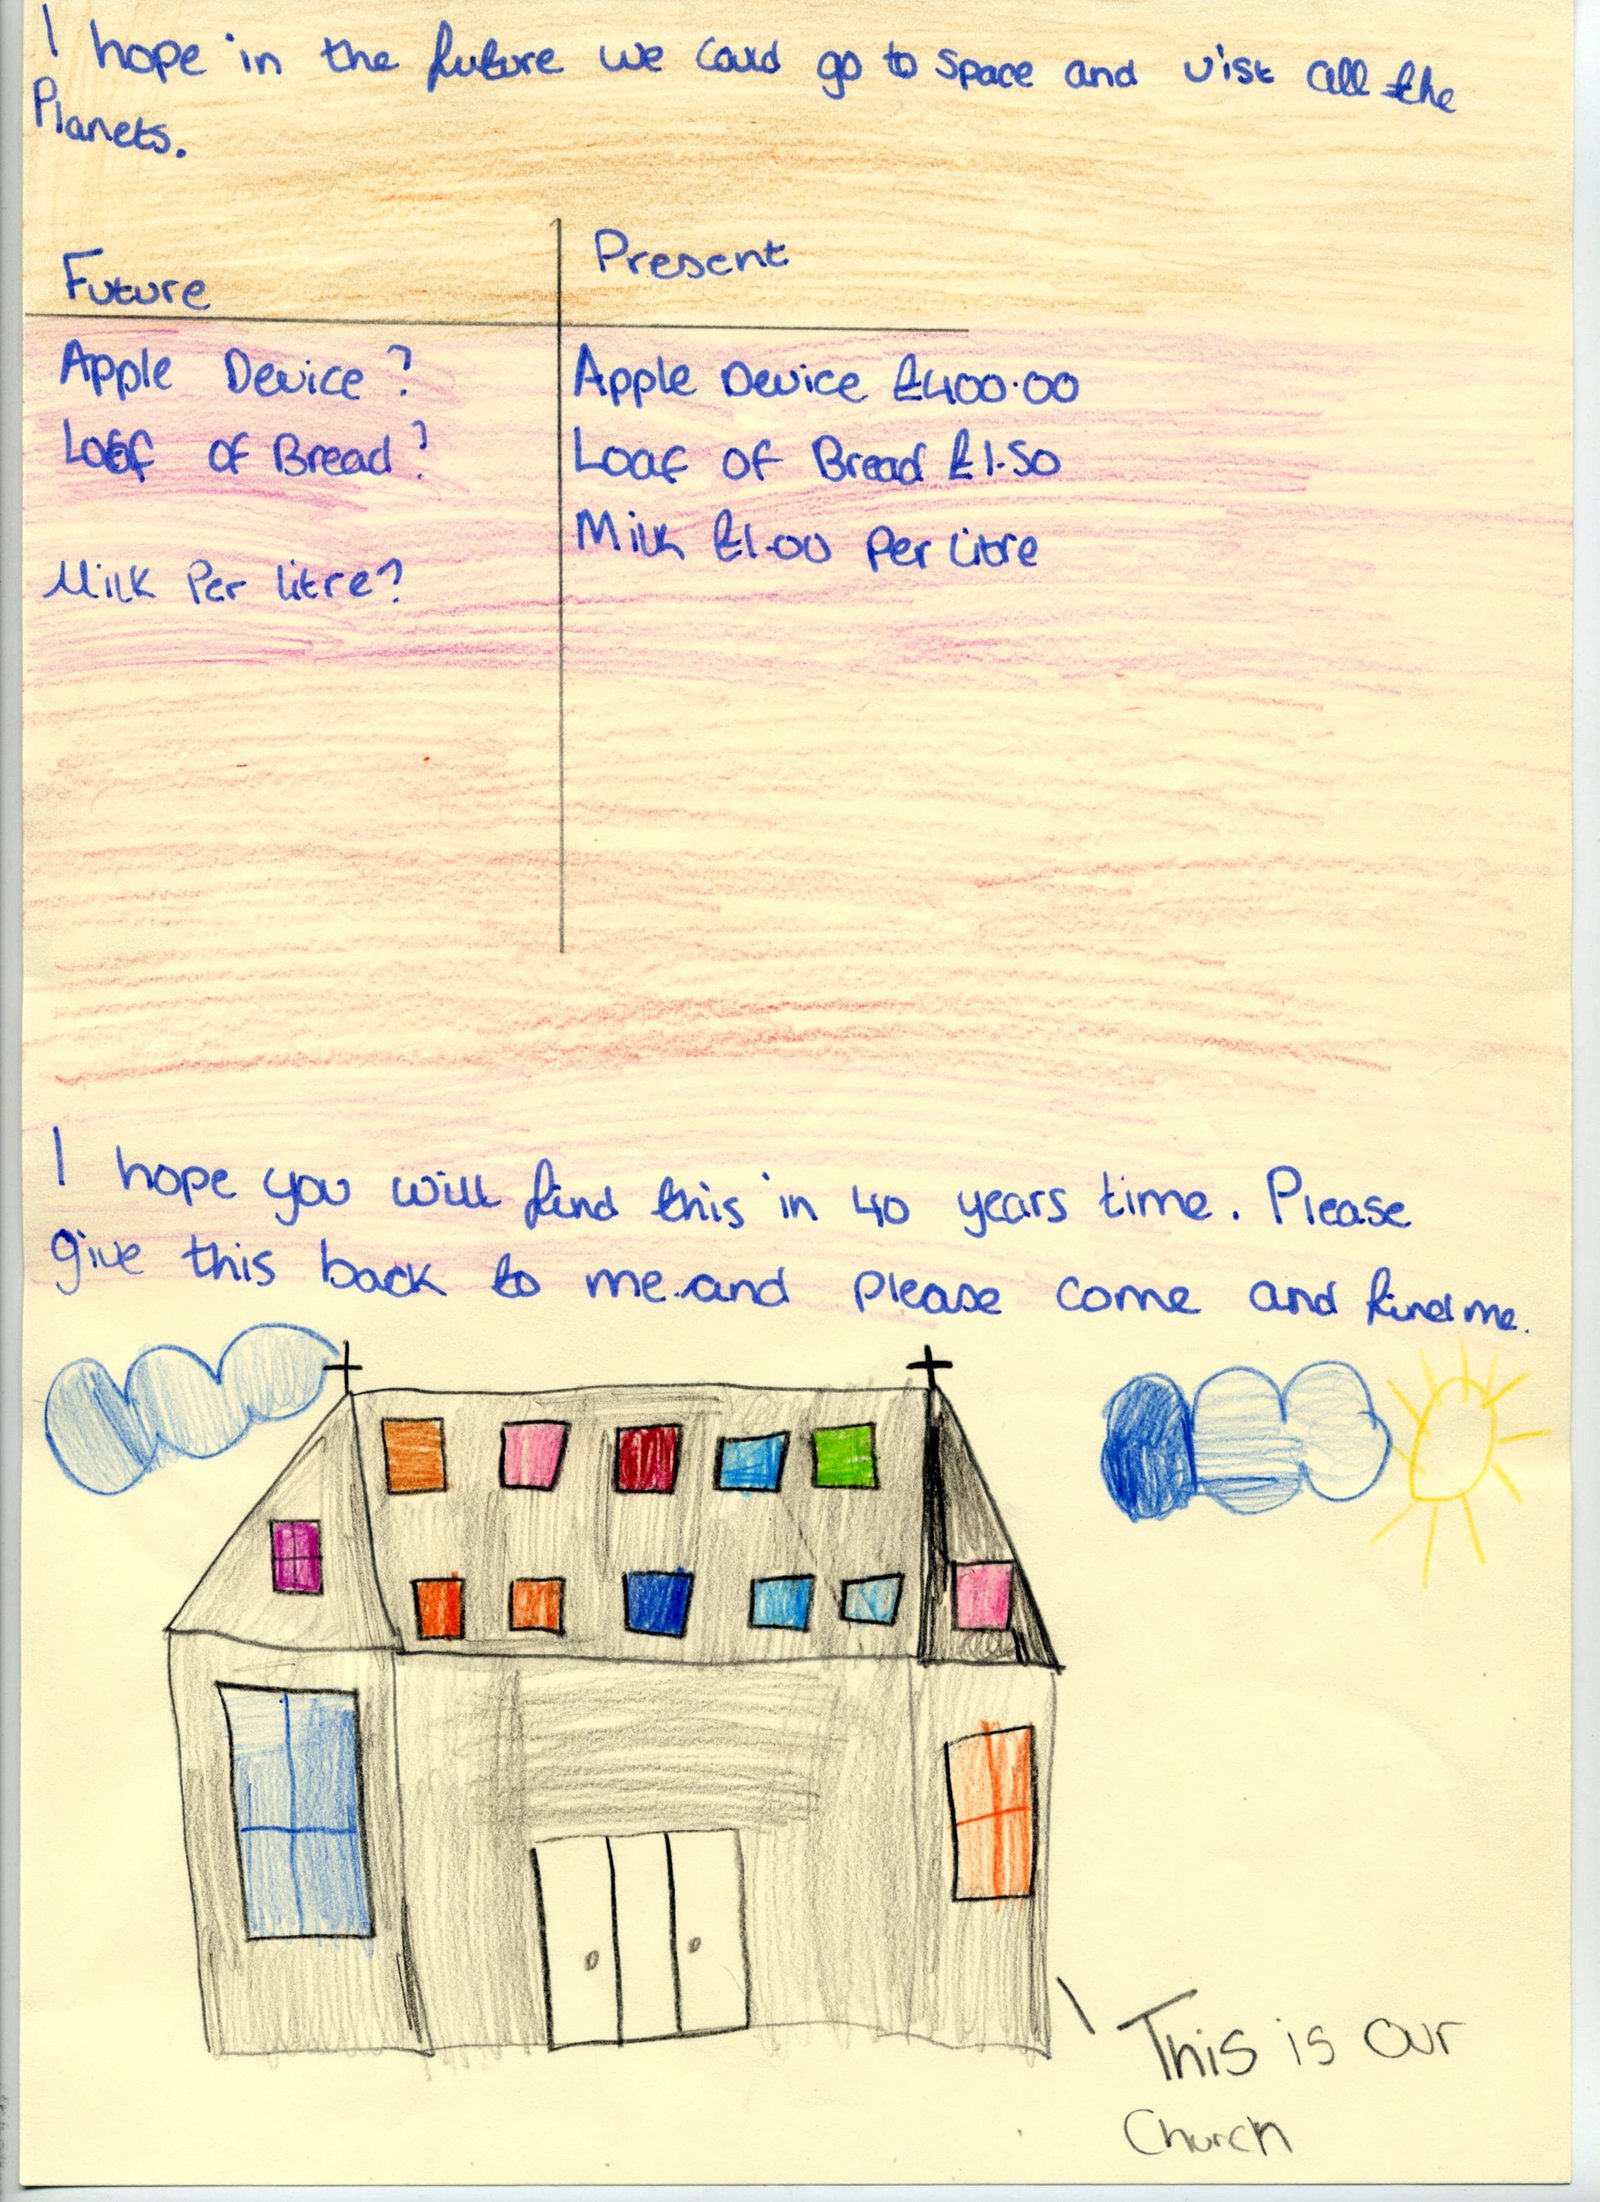 I hope in the future we could go to space and visit all the
Planets.
Future
Present
Apple Device ?
Apple Device £400.00
Loaf of Bread ?
Loaf of Bread £1.50
Milk £1.00 Per Litre
Milk Per litre?
I hope you will find this in 40 years time. Please
give this back to me and please come and find me.
This is our
Church